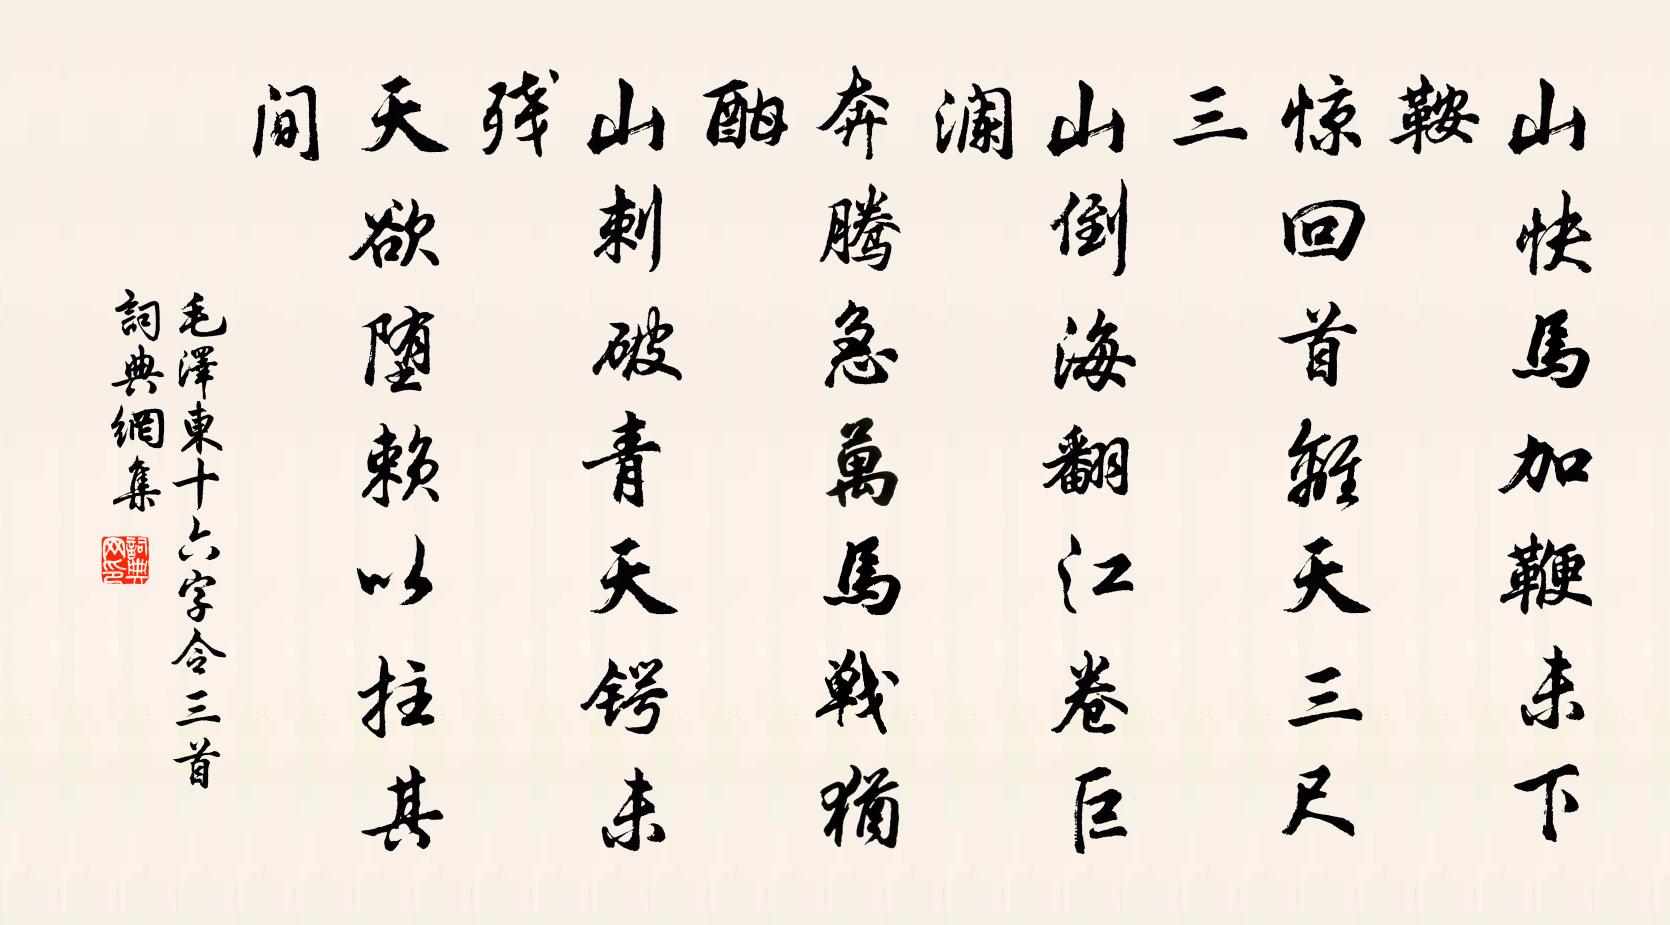 山快馬加鞭未下
鞍
惊回首離天三尺
三
山倒海翻江卷巨
澜
奔騰急萬馬戦猶
酣
山刺破青天锷未
残
天欲堕赖以拄其
間
毛澤東十六字令三首
詞典網集
詞典
网印